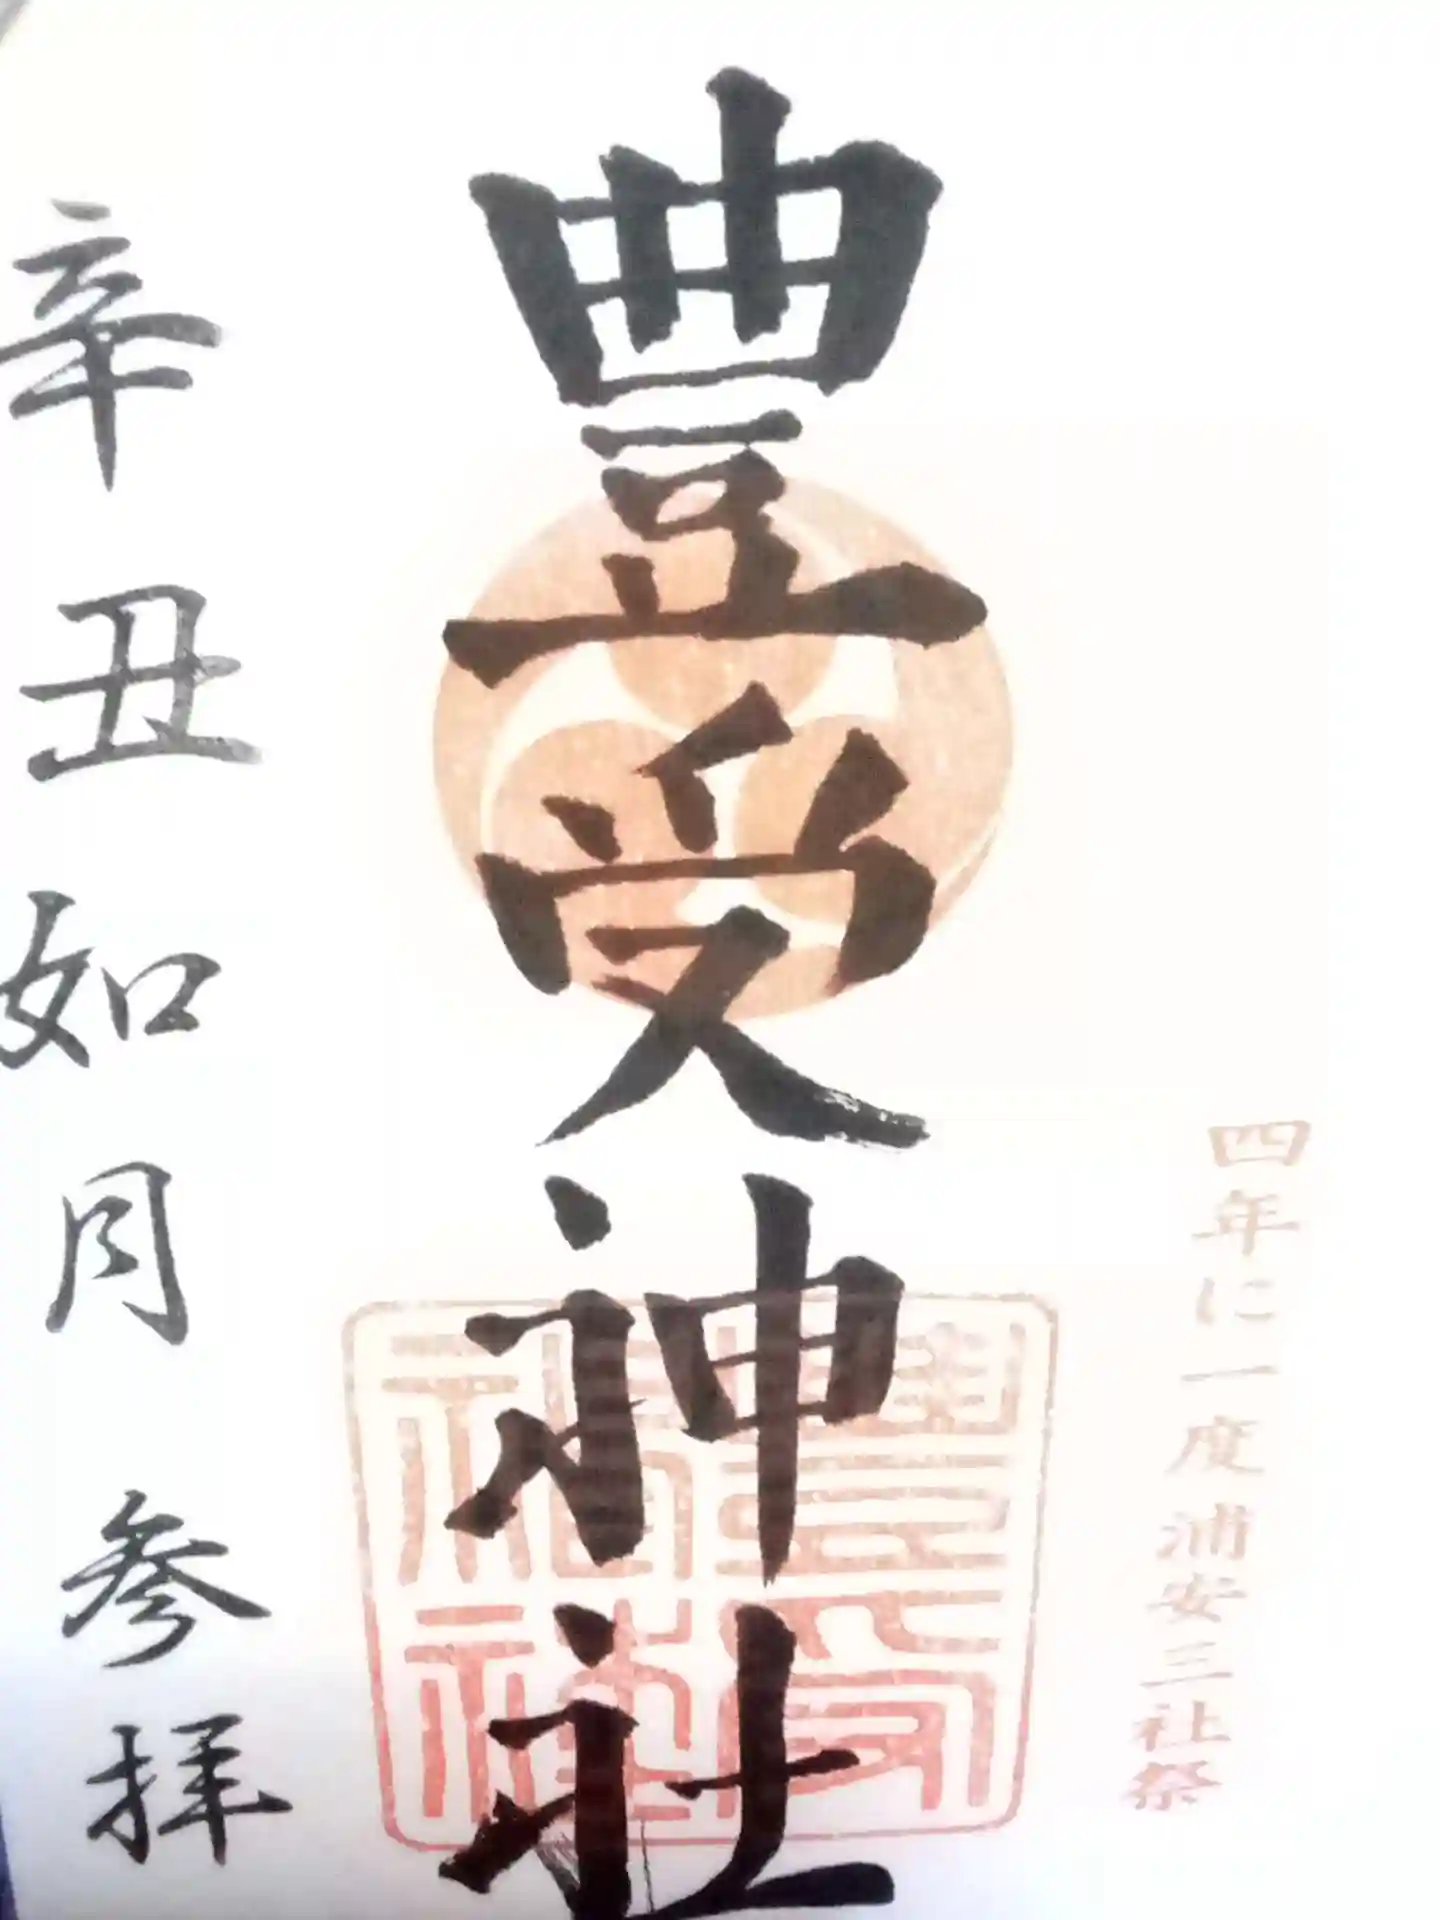 四年に一度 浦安三社祭
豊受神社
豊受神社
辛丑如月 参拝